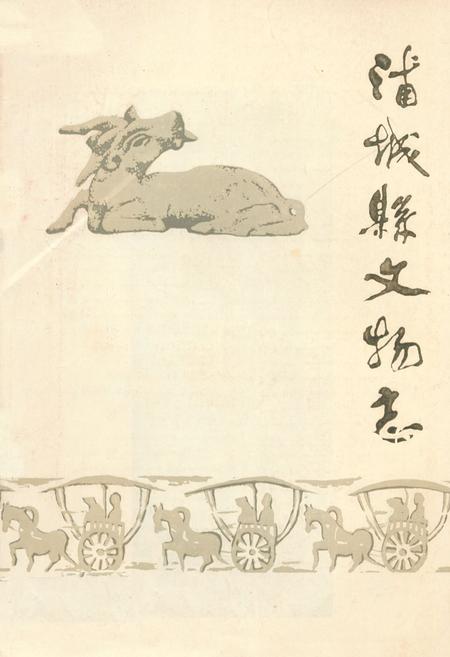 浦城縣文物志